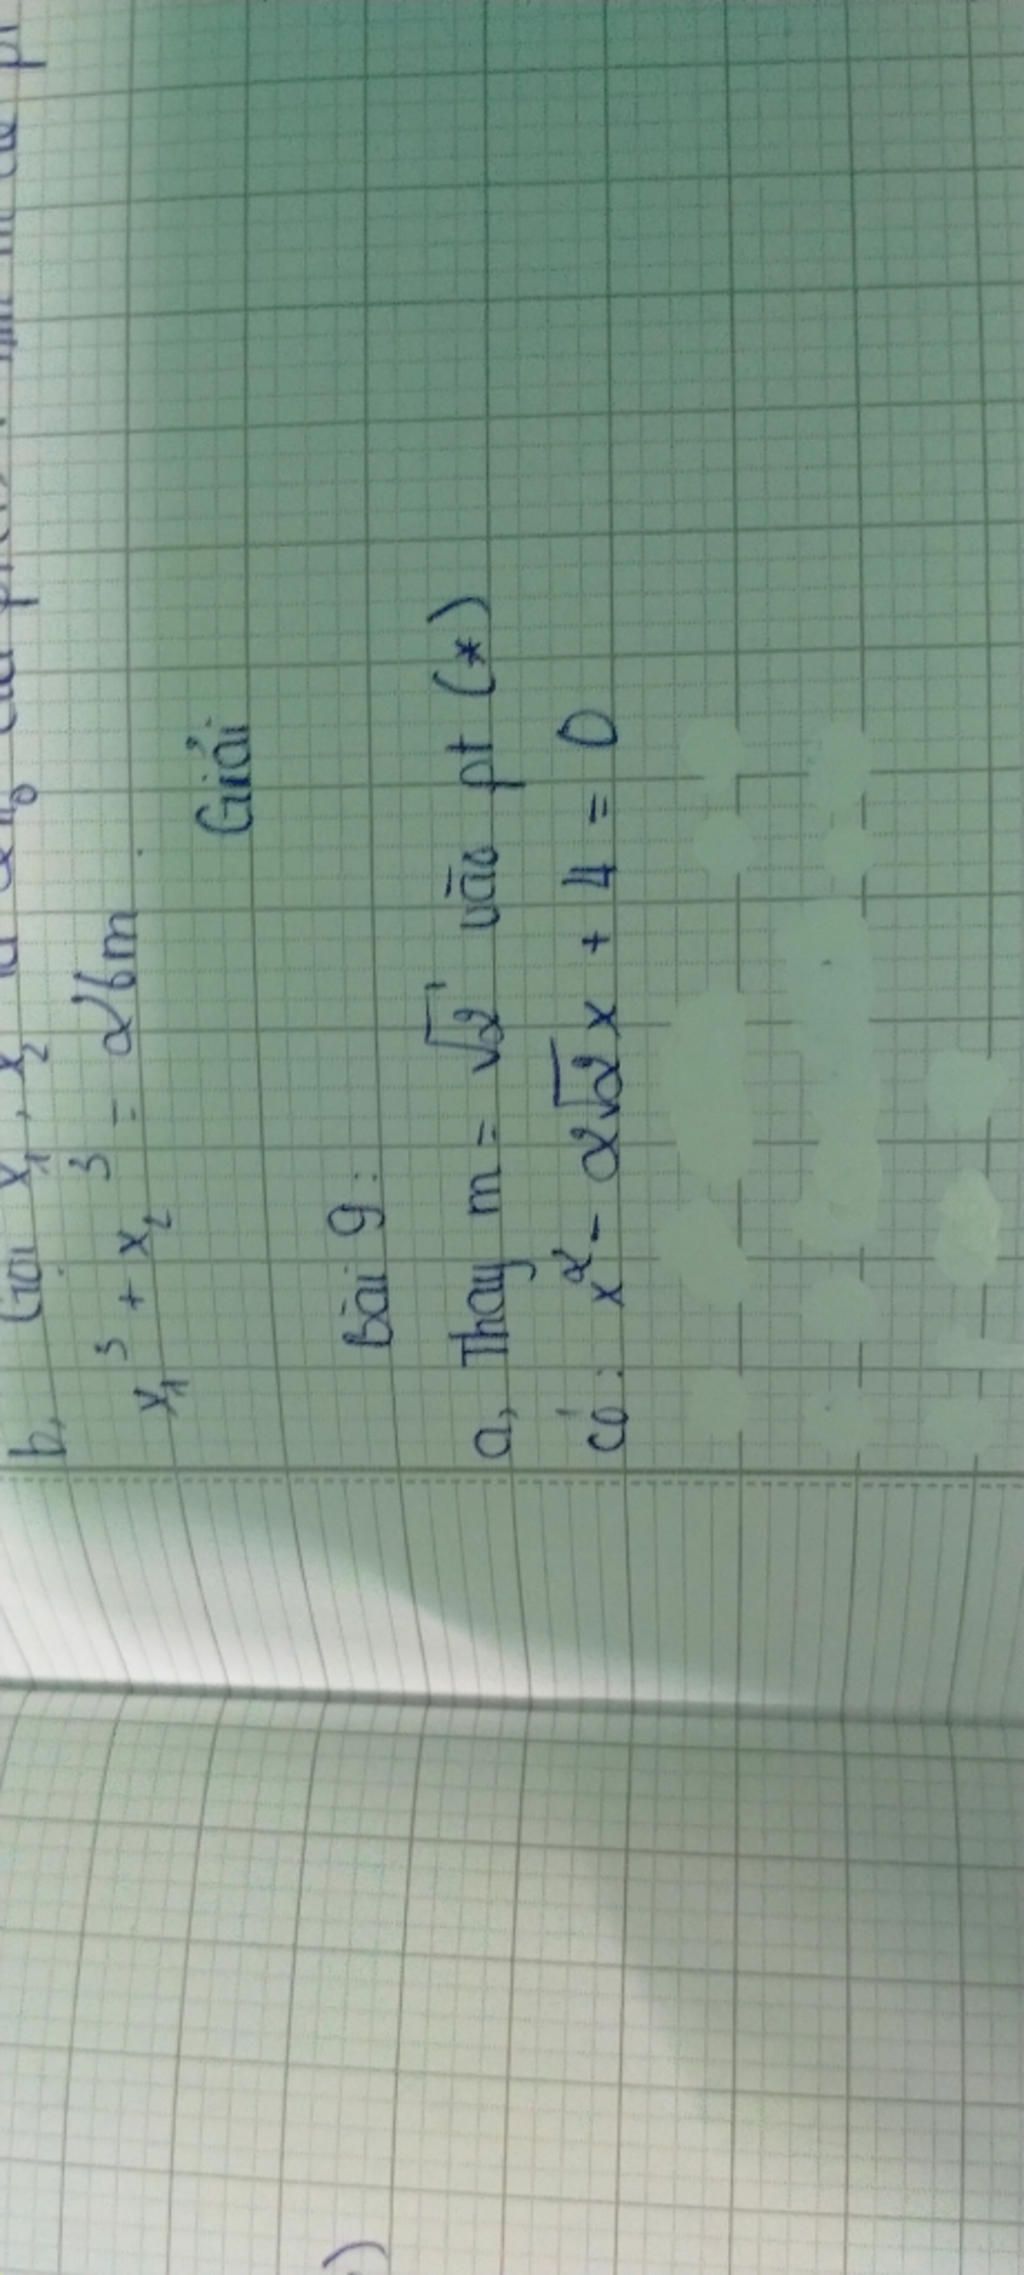 b, Gọi x₁, x₂ là
x₁³ + x₂³ = 26m
Giải
Bài 9:
a, Thay m = √2 vào pt (*)
có: x² - 2√2 x + 4 = 0
)